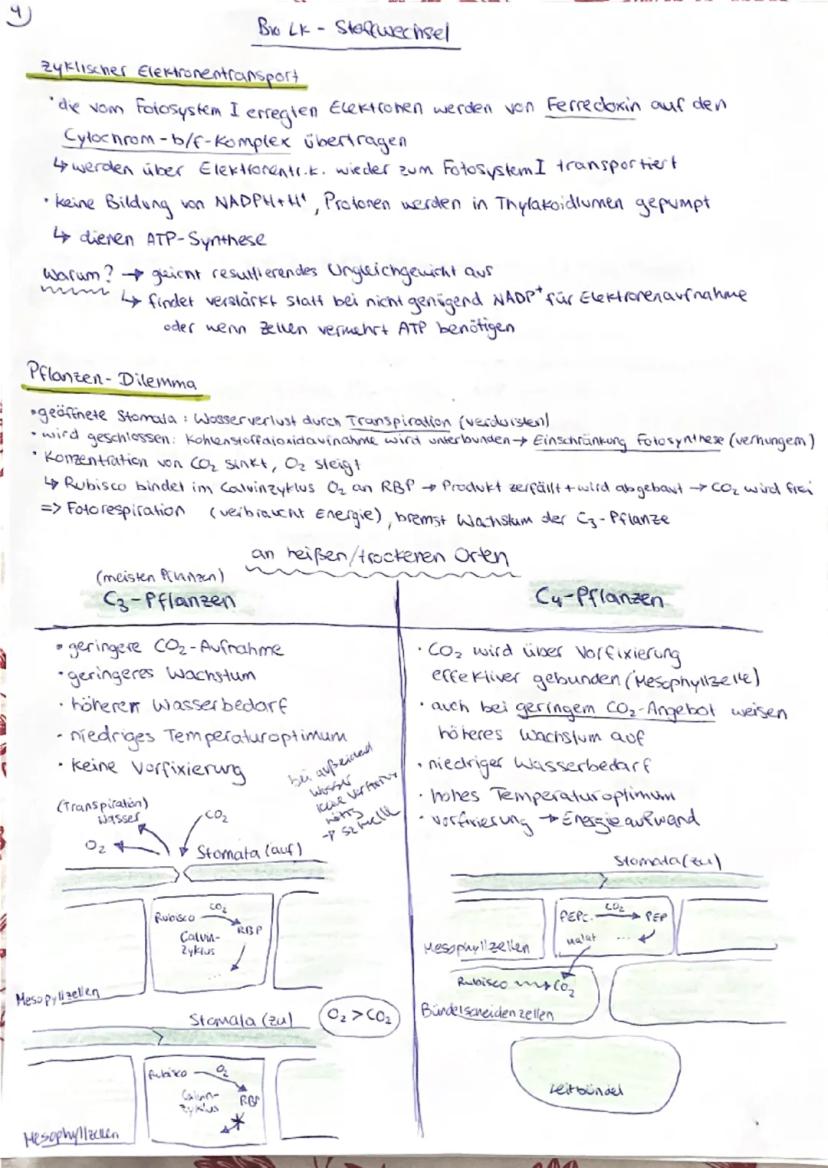 4)
Bio LK - Stoffwechsel
zyklischer Elektronentransport
• die vom Fotosystem I erregten Elektronen werden von Ferredoxin auf den
Cytochrom-b/f-Komplex übertragen
↳ werden über Elektronentr.k. wieder zum Fotosystem I transportiert
• keine Bildung von NADPH+H⁺, Protonen werden in Thylakoidlumen gepumpt
↳ dienen ATP-Synthese
Warum? → gleicht resultierendes Ungleichgewicht aus
↳ findet verstärkt statt bei nicht genügend NADP⁺ für Elektronenaufnahme
oder wenn Zellen vermehrt ATP benötigen
Pflanzen-Dilemma
• geöffnete Stomata: Wasserverlust durch Transpiration (verdursten)
• wird geschlossen: Kohlenstoffdioxidaufnahme wird unterbunden → Einschränkung Fotosynthese (verhungern)
• Konzentration von CO₂ sinkt, O₂ steigt
↳ Rubisco bindet im Calvinzyklus O₂ an RBP → Produkt zerfällt + wird abgebaut → CO₂ wird frei
=> Fotorespiration (verbraucht Energie), bremst Wachstum der C₃-Pflanze
an heißen/trockenen Orten
(meisten Pflanzen)
C₃-Pflanzen
• geringere CO₂-Aufnahme
• geringeres Wachstum
• höheren Wasserbedarf
• niedriges Temperaturoptimum
• keine Vorfixierung
bei
Wasser
keine
nötig
→
(Transpiration)
Wasser
CO₂
O₂
Stomata (auf)
Rubisco CO₂ RBP
Calvin-
zyklus
...
Mesopyllzellen
Stomata (zu)
O₂ > CO₂
Rubisco O₂ RBP
Calvin-
zyklus
Mesophyllzellen
C₄-Pflanzen
• CO₂ wird über Vorfixierung
effektiver gebunden (Mesophyllzelle)
• auch bei geringem CO₂-Angebot weisen
höheres Wachstum auf
• niedriger Wasserbedarf
• hohes Temperaturoptimum
• Vorfixierung → Energieaufwand
Stomata (zu)
PEPC. CO₂ PEP
Malat ...
Mesophyllzellen
Rubisco → CO₂
Bündelscheidenzellen
Leitbündel